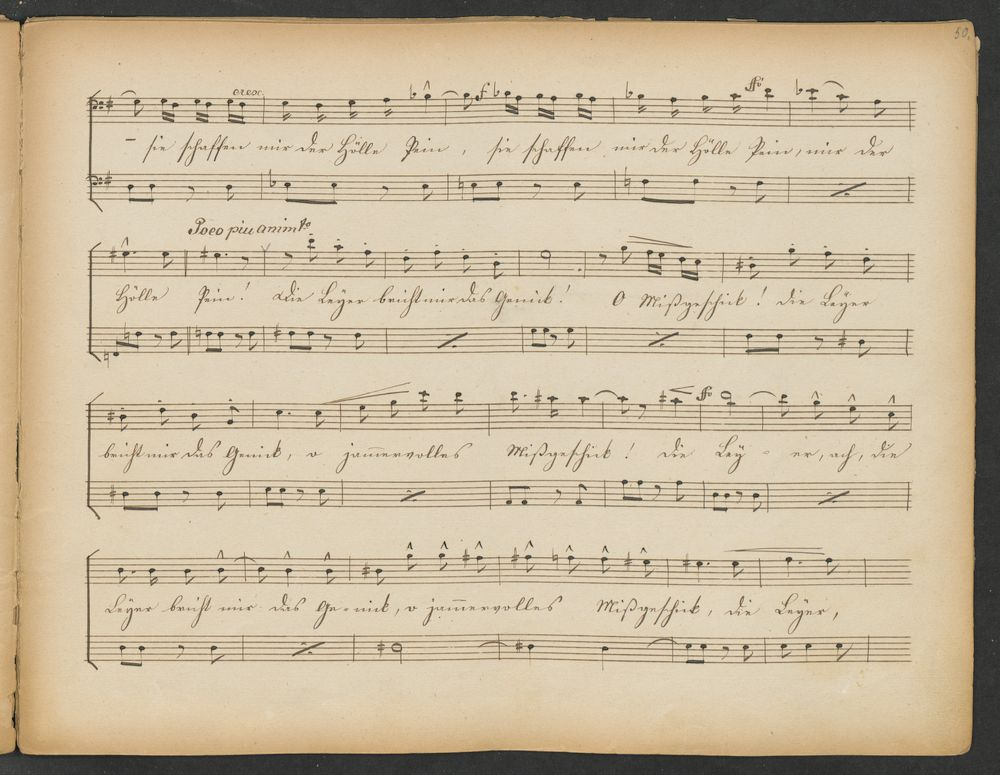 50.
cresc.
f
ffo
sie schaffen mir der Hölle Pein, sie schaffen mir der Hölle Pein, mir der
Poco piu animto
Hölle Pein! Die Leÿer bricht mir das Genick! O Mißgeschick! die Leÿer
fo
bricht mir das Genick, o jam̅ervolles Mißgeschick! die Ley - er, ach, die
Leÿer bricht mir das Ge-nick, o jam̅ervolles Mißgeschick, die Leÿer,